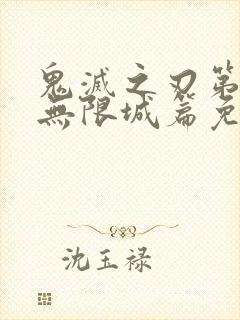 鬼滅之刃第
無限城篇免
沈玉禄